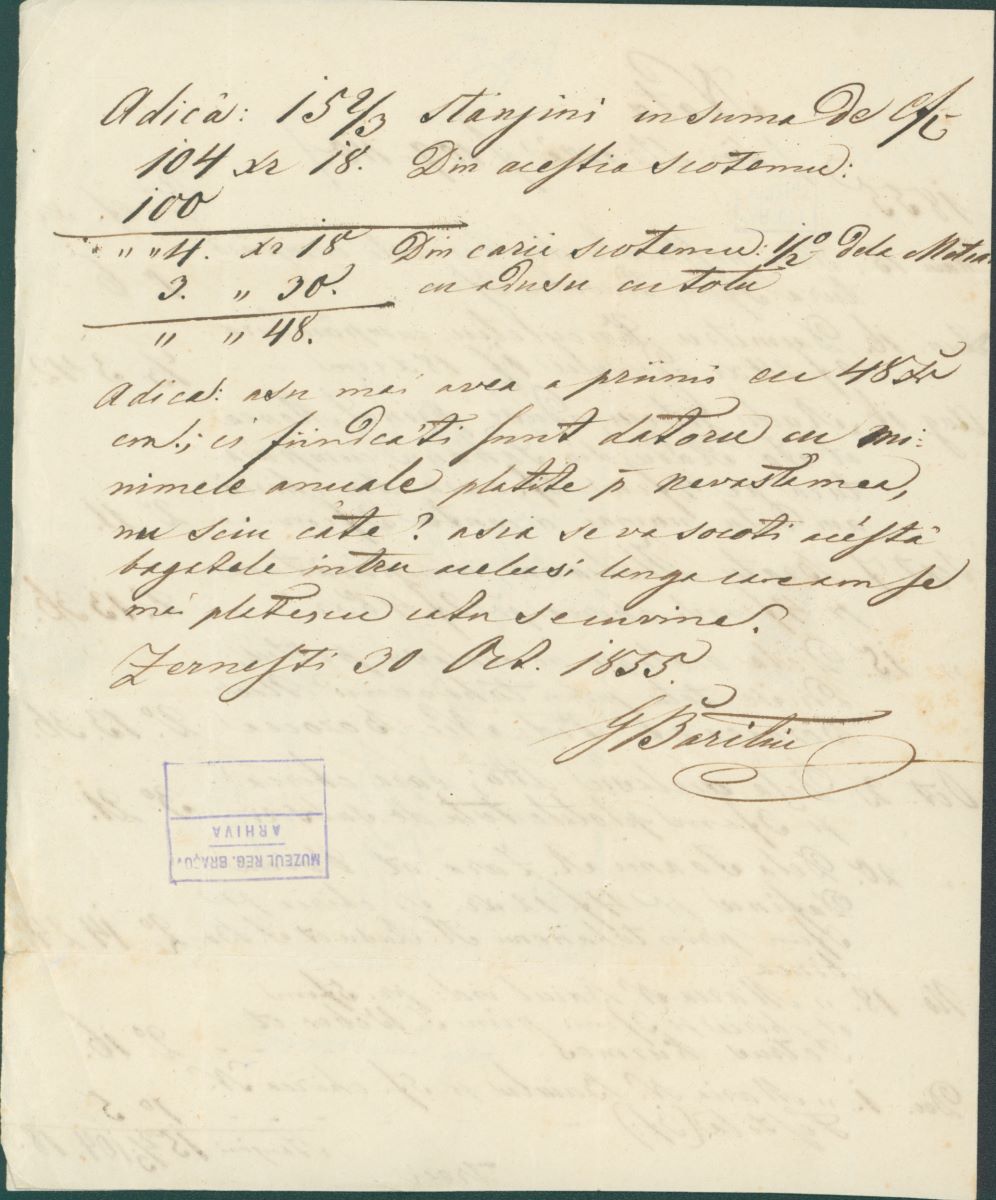 Adică: 15 2/3 stânjini in suma de f
104 xr 18. Din aceștia scotemu:
100
" " 4. xr 18 Din carii scotemu: 1/2 dela
3. " 30. cu adusu cu totu
" " 48.
Adica: asu mai avea a priimi cu 48 xr
cm.; ci fiindcă ti sunt datoru cu mi-
nimele anuale platite p nevastamea,
nu sciu câte? asia se va socoti acéstă
bagatele intru aceleasi langa care am se
mai platescu catu se cuvine.
Zernesti 30 Oct. 1855.
G Baritiu
MUZEUL REG. BRAȘOV
ARHIVA